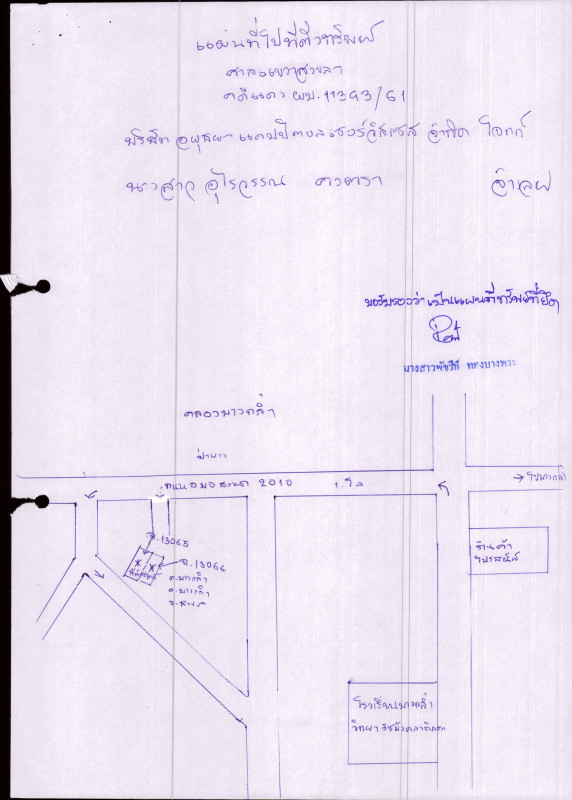 แผนที่ไปที่ตั้งทรัพย์
ศาลแขวงสงขลา
คดีแดง ผบ.11393/61
บริษัท อยุธยา แคปปิตอล เซอร์วิสเซส จำกัด โจทก์
นางสาว อุไรวรรณ จำเลย
ขอรับรองว่าเป็นแผนที่ทรัพย์ที่ยึด
นางสาวพัชรี ทองบางพระ
คลองบางกล่ำ
ถนน 2010 1.โล
→ ไปบางกล่ำ
ฉ.13065
ฉ.13066
ต.บางกล่ำ
อ.บางกล่ำ
จ.สงขลา
ร้านค้า
ไปรษณีย์
โรงเรียนบางกล่ำ
วิทยา รัชมังคลาภิเษก